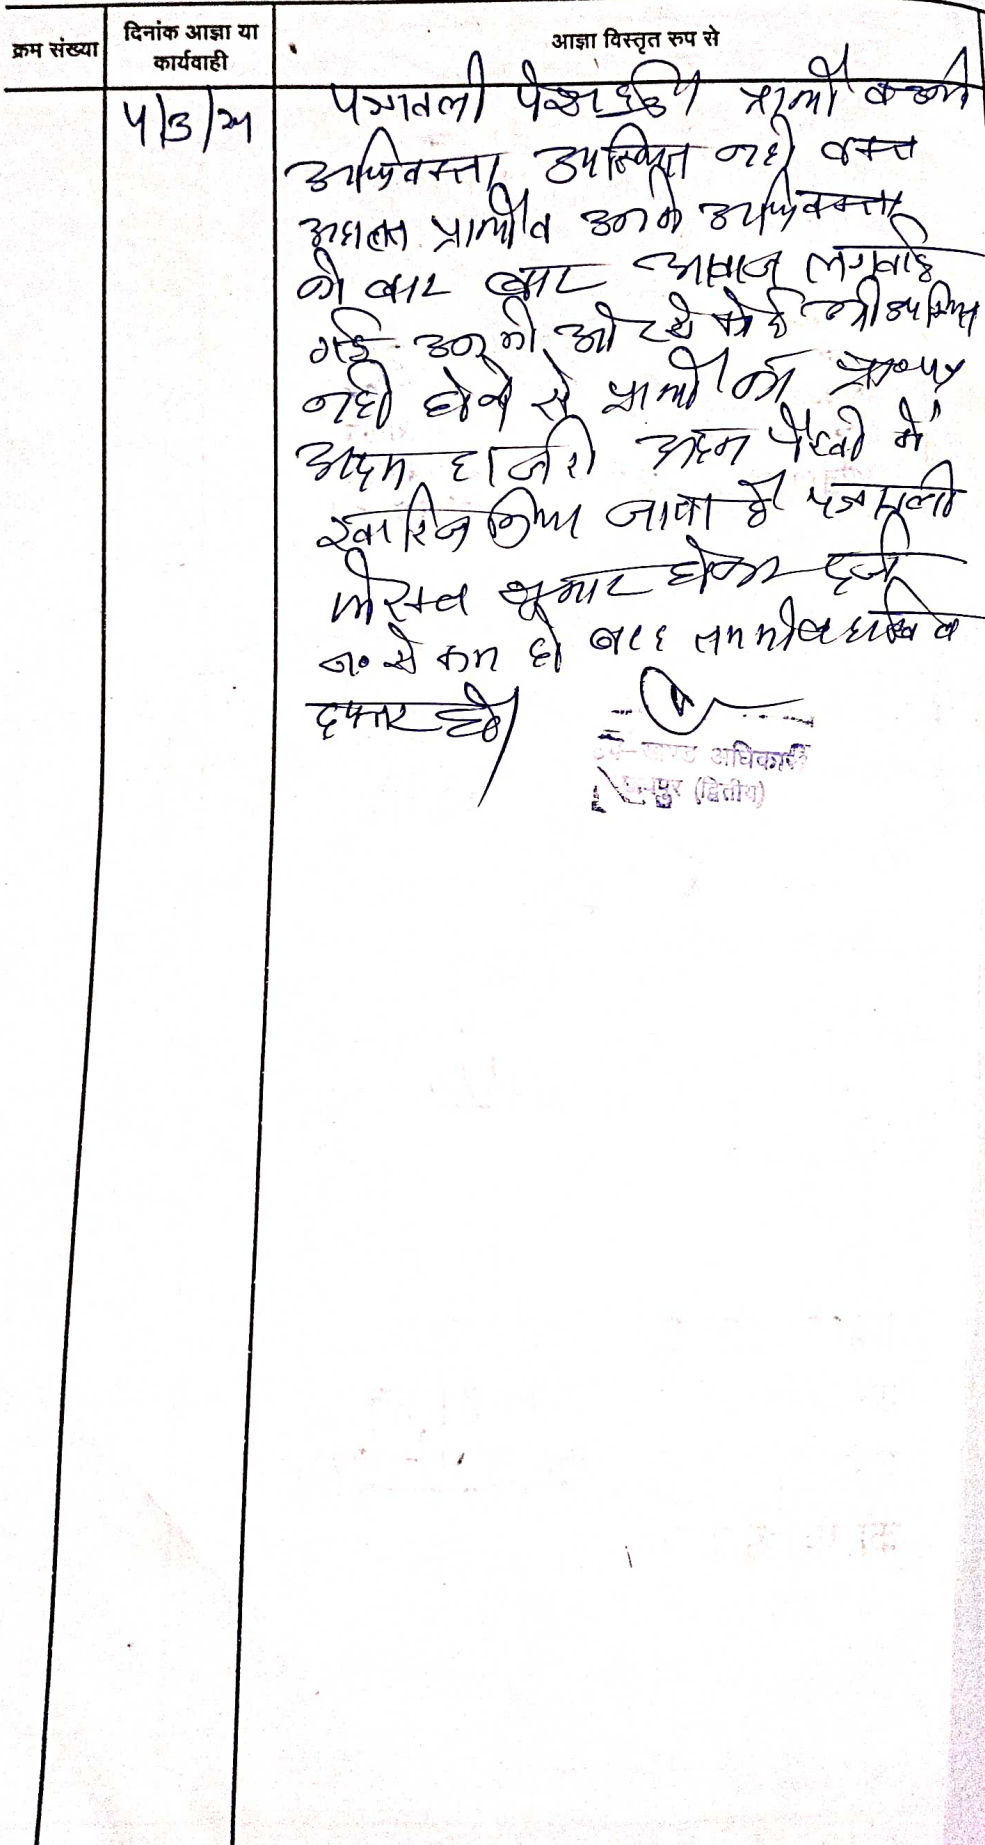 क्रम संख्या
दिनांक आज्ञा या
कार्यवाही
आज्ञा विस्तृत रुप से
पत्रावली पेश हुई प्रार्थी व उनके
अधिवक्ता उपस्थित नहीं वक्त
अदालत प्रार्थी व उनके अधिवक्ता
को बार बार आवाज लगवाई
गई उनकी ओर से कोई भी उपस्थित
नही होने से प्रार्थी का प्रा०पत्र
अदम हाजरी अदम पैरवी में
खारिज किया जाता है पत्रावली
फैसल शुमार होकर दर्ज
न० से कम हो बाद तकमील दाखिल
दफ्तर हो
खण्ड अधिकारी
(द्वितीय)